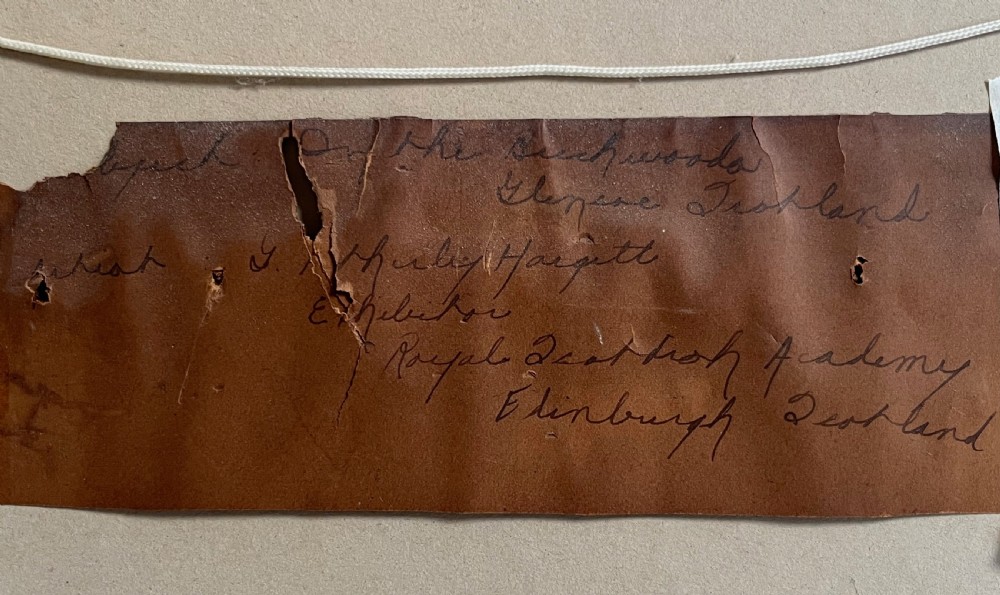 In the Birchwoods
Glencoe Scotland
Artist G. Hargitt
Exhibitor
Royal Scottish Academy
Edinburgh Scotland